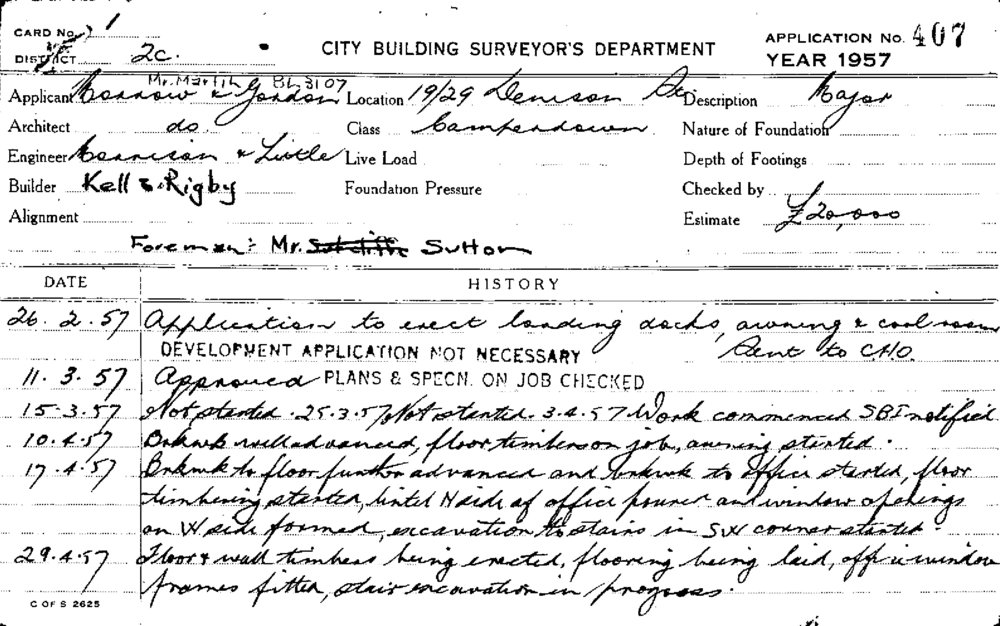 CARD No. 1
DISTRICT 2c.
CITY BUILDING SURVEYOR'S DEPARTMENT
APPLICATION No. 407
YEAR 1957
Mr. Martin BL3107
Applicant Morrow & Gordon Location 19/29 Denison St Description Major
Architect do. Class Camperdown Nature of Foundation
Engineer Morrison & Little Live Load Depth of Footings
Builder Kell & Rigby Foundation Pressure Checked by
Alignment Estimate £20,000
Foreman: Mr. Sutcliffe Sutton
DATE HISTORY
26.2.57 Application to erect loading docks, awning & cool room
DEVELOPMENT APPLICATION NOT NECESSARY Sent to CHO.
11.3.57 Approved PLANS & SPECN. ON JOB CHECKED
15.3.57 Not started. 25.3.57 Not started. 3.4.57 Work commenced SBI notified
10.4.57 Brkwk well advanced, floor timbers on job, awning started.
17.4.57 Brkwk to floor further advanced and brkwk to office started, floor
timbering started, lintel N side of office poured and window openings
on W side formed, excavation to stairs in SW corner started
29.4.57 Floor & wall timbers being erected, flooring being laid, office window
frames fitted, stair excavation in progress.
C OF S 2625